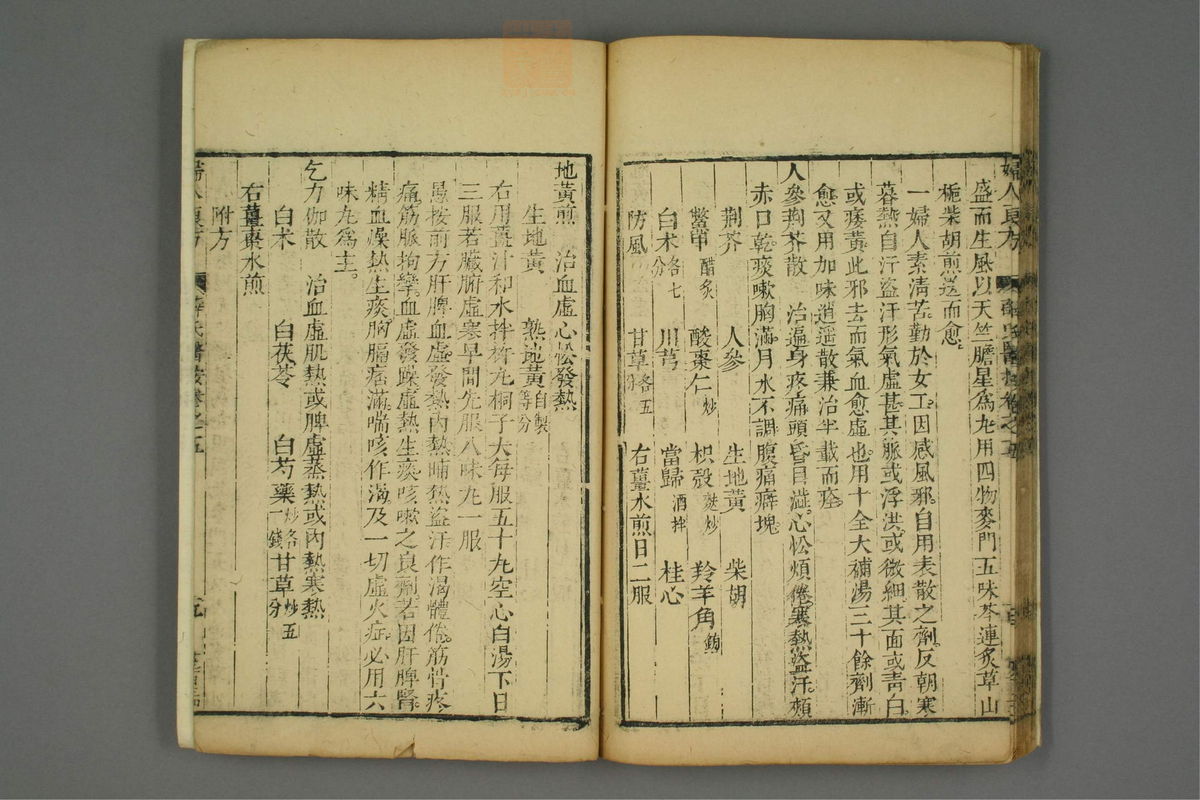 婦人良方
盛而生風以天竺膽星爲丸用四物麥門五味芩連炙草山
梔柴胡煎送而愈
一婦人素淸苦勤於女工因感風邪自用表散之劑反朝寒
暮熱自汗盜汗形氣虛甚其脈或浮洪或微細其面或靑白
或痿黃此邪去而氣血愈虛也用十全大補湯三十餘劑漸
愈又用加味逍遥散兼治半載而痊
人參荆芥散 治遍身疼痛頭昏目澁心忪煩倦寒熱盜汗頰
赤口乾痰嗽胸滿月水不調腹痛癖塊
荆芥 人參 生地黃 柴胡
鱉甲醋炙 酸棗仁炒 枳殼麩炒 羚羊角鎊
白术各七分 川芎 當歸酒拌 桂心
防風 甘草各五分 右薑水煎日二服
地黃煎 治血虛心忪發熱
生地黃 熟地黃自製等分
右用薑汁和水拌杵丸桐子大每服五十丸空心白湯下日
三服若臟腑虛寒早間先服八味丸一服
愚按前方肝脾血虛發熱内熱晡熱盜汗作渴體倦筋骨疼
痛筋脈拘攣血虛發躁虛熱生痰咳嗽之良劑若因肝脾腎
精血燥熱生痰胸膈痞滿喘咳作渴及一切虛火症必用六
味丸爲主
乞力伽散 治血虛肌熱或脾虛蒸熱或内熱寒熱
白术 白茯苓 白芍藥炒各一錢 甘草炒五分
右薑棗水煎
附方
婦人良方 薛氏醫按卷之五